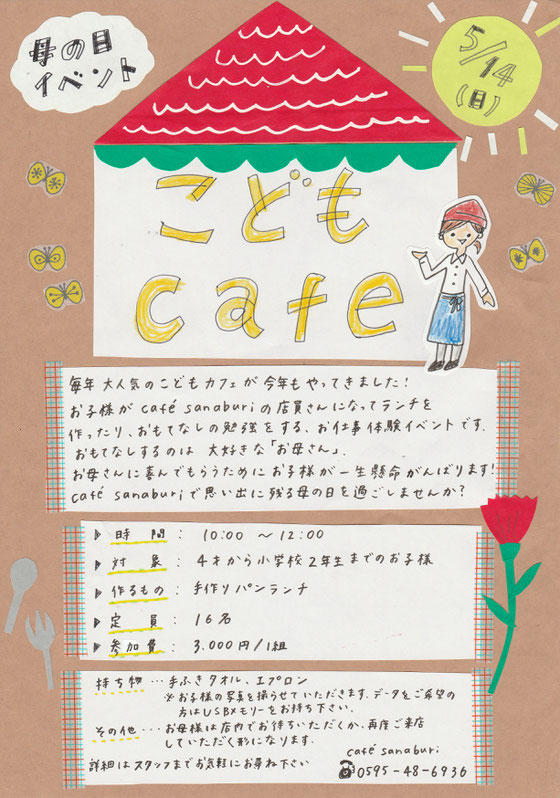 母の日
イベント
5/14
(日)
こども
cafe
毎年大人気のこどもカフェが今年もやってきました!
お子様がcafé sanaburiの店員さんになってランチを
作ったり、おもてなしの勉強をする、お仕事体験イベントです.
おもてなしするのは 大好きな「お母さん」.
お母さんに喜んでもらうためにお子様が一生懸命がんばります!
café sanaburiで思い出に残る母の日を過ごしませんか?
▷ 時間 : 10:00 〜 12:00
▷ 対象 : 4才から小学校2年生までのお子様
▷ 作るもの : 手作りパンランチ
▷ 定員 : 16名
▷ 参加費 : 3.000円/1組
持ち物 … 手ふきタオル、エプロン
※お子様の写真を撮らせていただきます.データをご希望の
方はUSBメモリーをお持ち下さい.
その他 … お母様は店内でお待ちいただくか、再度ご来店
していただく形になります.
詳細はスタッフまでお気軽にお尋ね下さい
café sanaburi
☎0595-48-6936